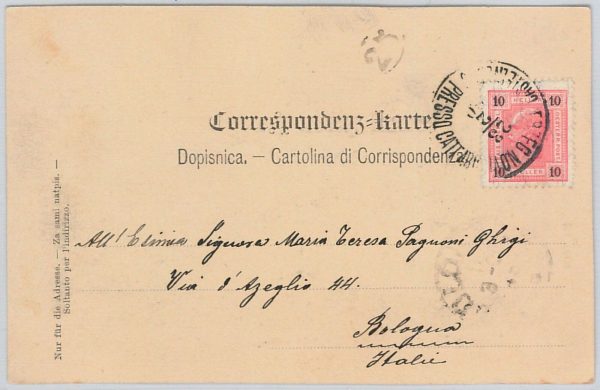 Correspondenz-Karte
Dopisnica. — Cartolina di Corrispondenza.
10 HELLER 10
10 HELLER 10
PRESSO CATTARO
All' Esimia Signora Maria Teresa Pagnoni Ghigi
Via d'Azeglio 44.
Bologna
Italie
Nur für die Adresse. — Za sami natpis. —
Soltanto per l'indirizzo.